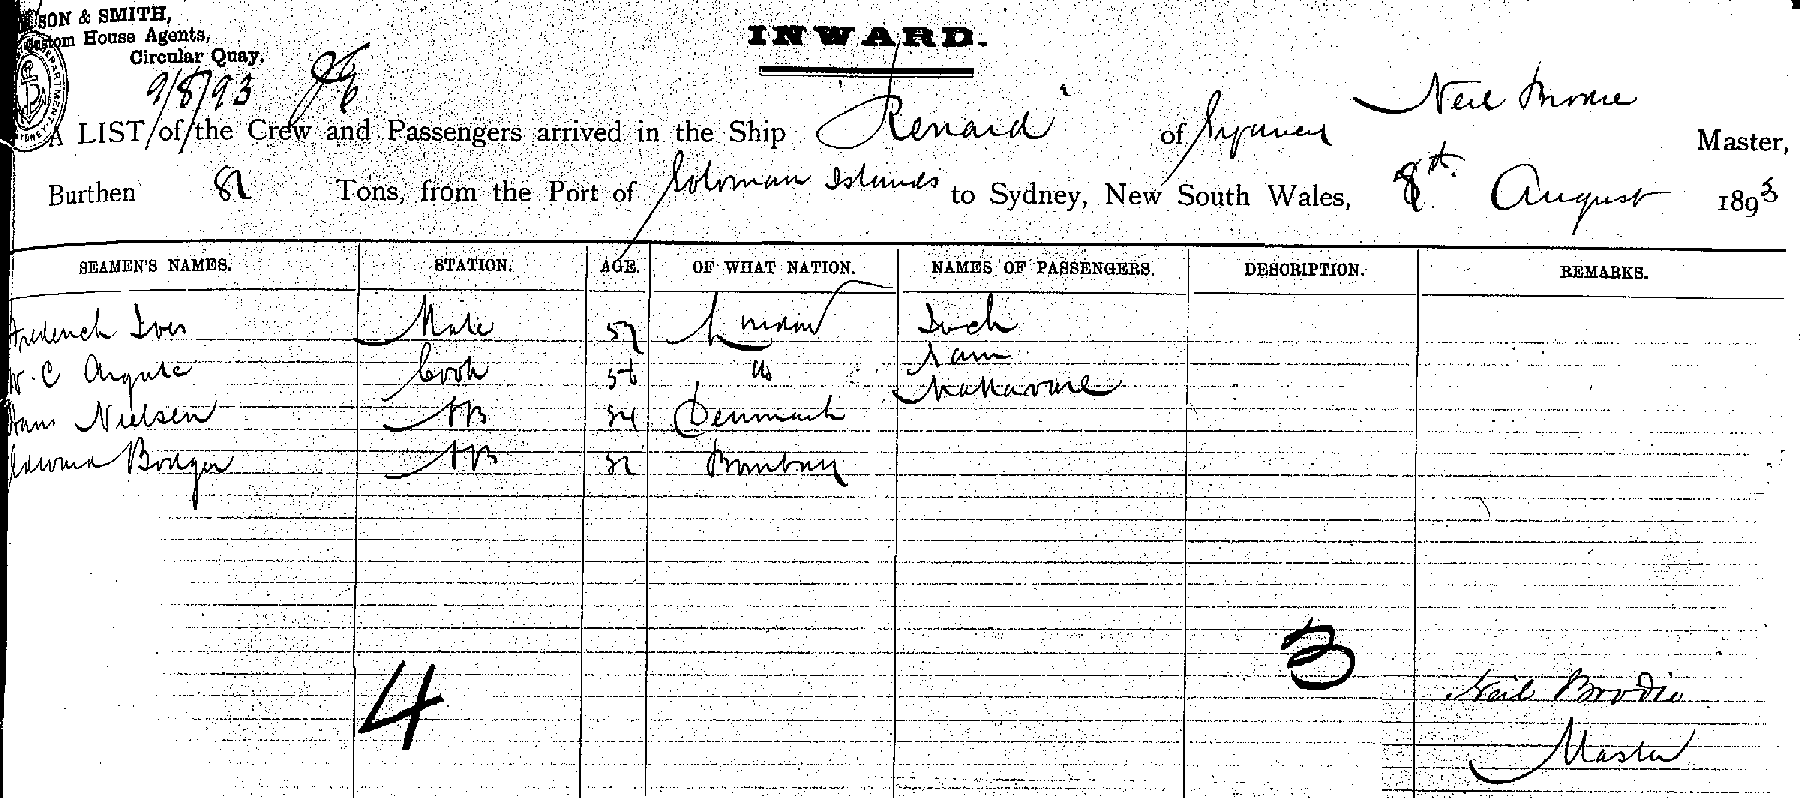 SON & SMITH,
Custom House Agents,
Circular Quay.
9/8/93
INWARD.
Neil Brodie
A LIST of the Crew and Passengers arrived in the Ship "Renard" of Sydney Master,
Burthen 82 Tons, from the Port of Solomon Islands to Sydney, New South Wales, 8th August 1893
SEAMEN'S NAMES. STATION. AGE. OF WHAT NATION. NAMES OF PASSENGERS. DESCRIPTION. REMARKS.
Frederick Ives Mate 57 London
W. C Cook 56 do Sam
Hans Nielsen AB 34 Denmark
Edward Bodger AB 32 Bombay
4 3
Neil Brodie
Master